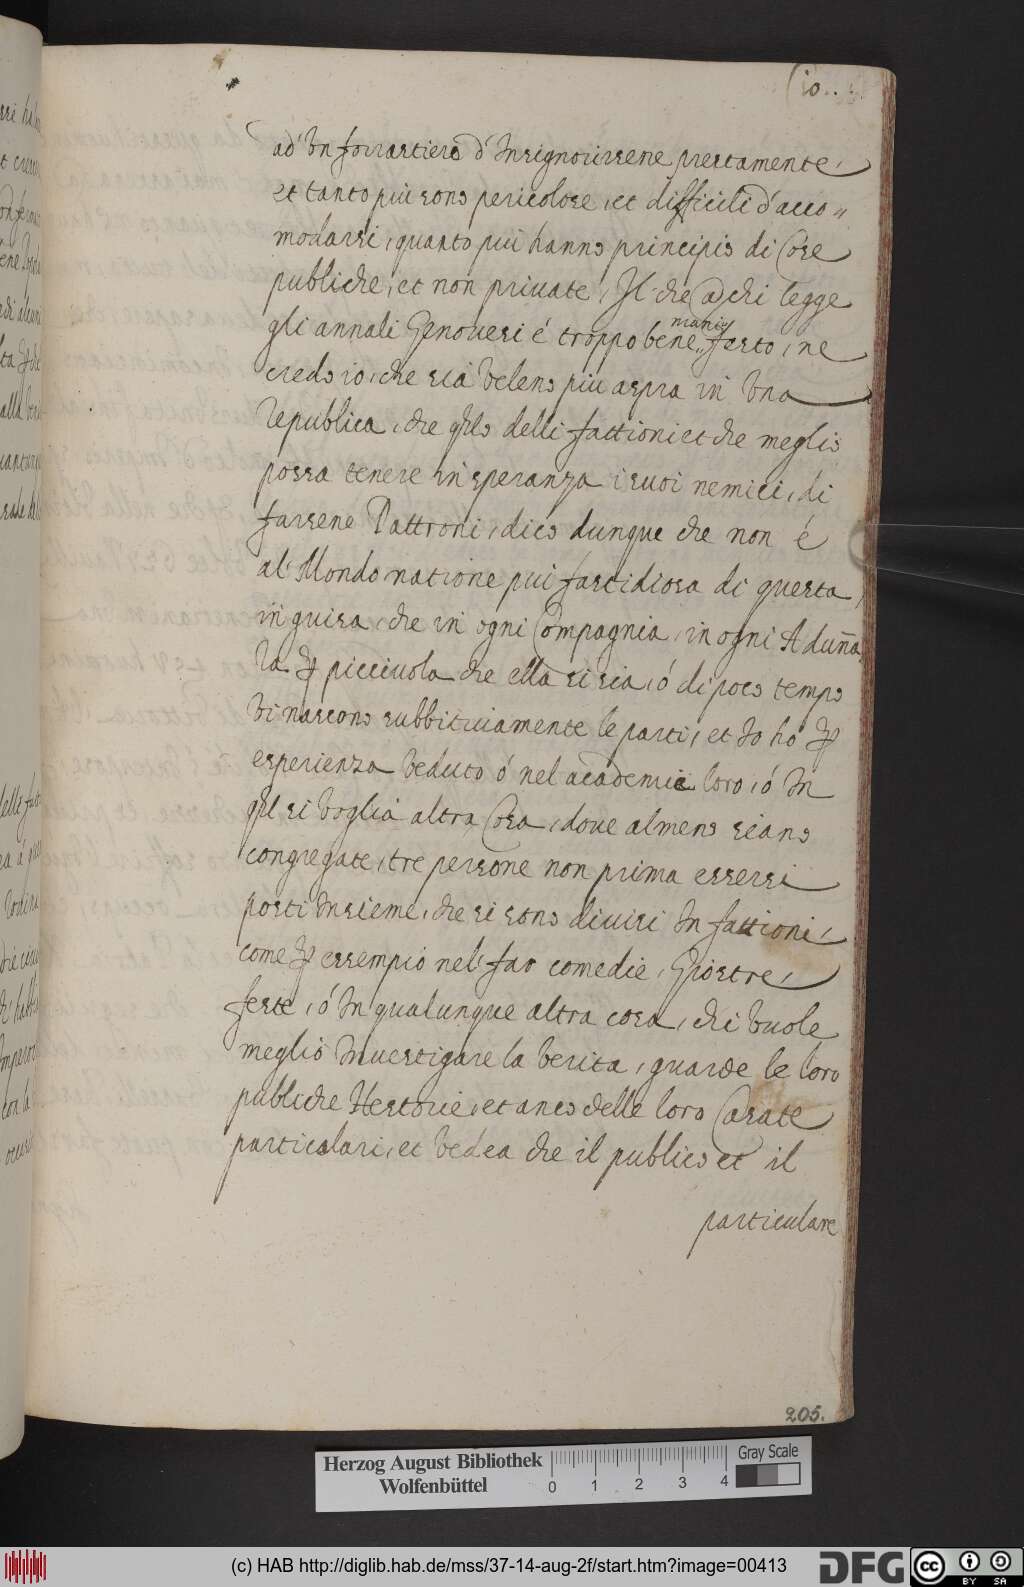 10..
ad' Un forrastiero d' Insignorirsene prestamente,
et tanto più sono pericolose, et difficili d'acco„
modarsi, quanto più hanno principio di Cose
publiche, et non private, Il che a chi legge
gli annali Genovesi é troppo bene manifesto, ne
credo io, che sia veleno più aspra in Una
Republica, che qllo delli fattioni et che meglio
possa tenere in speranza i suoi nemici, di
farsene Pattroni, dico dunque che non é
al' Mondo natione più fastidiosa di questa,
in guisa, che in ogni Compagnia, in ogni Aduña
Za ꝑ picciuola che ella si sia, ó di poco tempo
Vi nascono subbitiviamente le parti, et Io ho ꝑ
esperienza Veduto ó nel academie loro, ó In
qͣl si Voglia altra Cosa, dove almeno siano
congregate, tre persone non prima essersi
posti Insieme, che si sono divisi In fattioni,
come ꝑ essempio nel' far comedie, Giostre,
feste, ó In qualunque altra cosa, chi Vuole
meglio Investigare la Verita, guarde le loro
publiche Historie, et anco delle loro Casate
particolari, et Vedea che il publico et il
particulare
205.
Herzog August Bibliothek
Wolfenbüttel
0 1 2 3 4
Gray Scale
(c) HAB http://diglib.hab.de/mss/37-14-aug-2f/start.htm?image=00413
DFG
cc BY SA